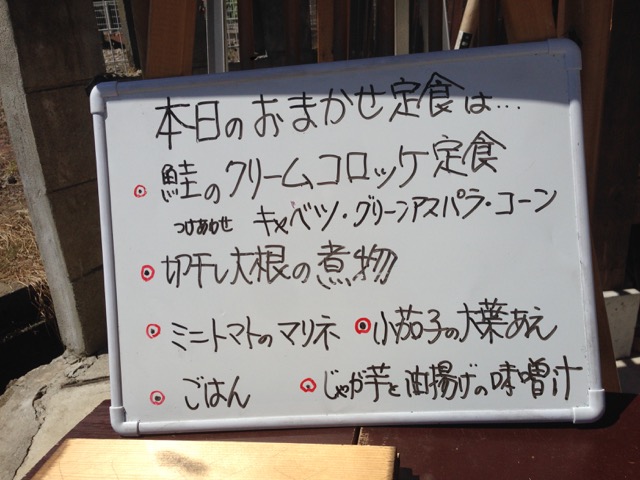 本日のおまかせ定食は...
鮭のクリームコロッケ定食
つけあわせ キャベツ・グリーンアスパラ・コーン
切干し大根の煮物
ミニトマトのマリネ 小茄子の大葉あえ
ごはん じゃが芋と油揚げの味噌汁